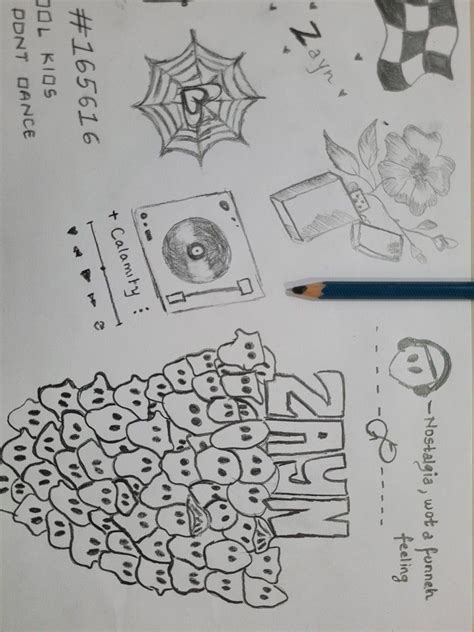 Zayn
~Nostalgia, wot a funneh
feeling
ZAYN
+ Calamity :
#165616
OOL KIDS
DONT DANCE